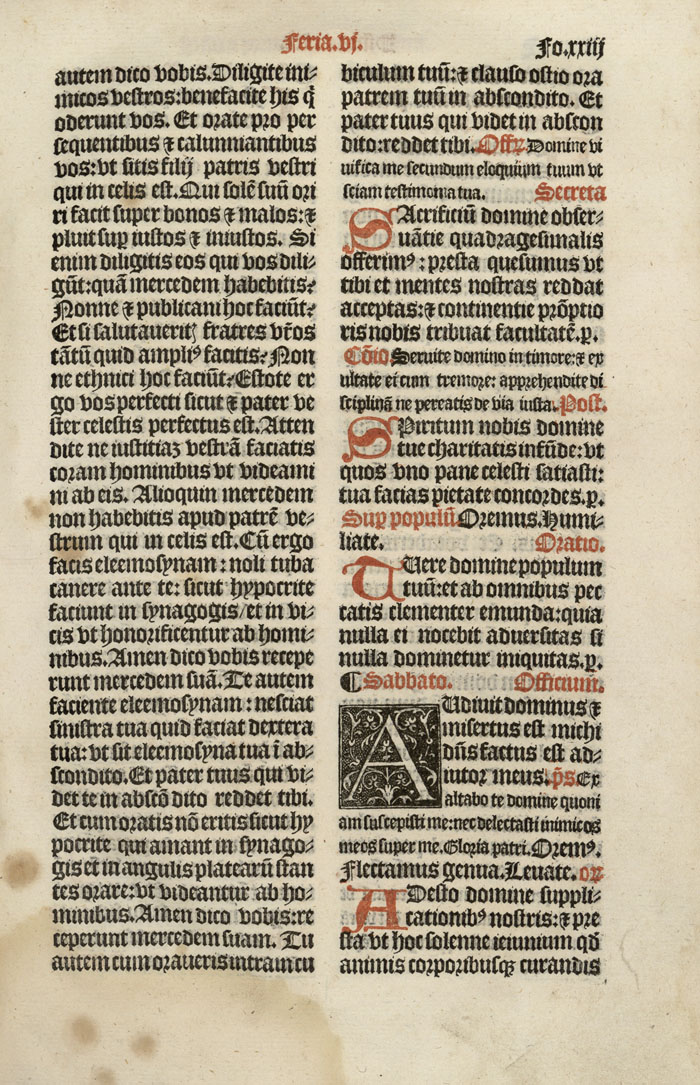 Feria.vj.
Fo.xxiij
autem dico vobis.Diligite ini⸗
micos vestros:benefacite his q̄
oderunt vos. Et orate pro per
sequentibus ⁊ calumniantibus
vos:vt sitis filij patris vestri
qui in celis est.Qui solē suū ori
ri facit super bonos ⁊ malos:⁊
pluit sup iustos ⁊ iniustos. Si
enim diligitis eos qui vos dili⸗
gūt:quā mercedem habebitis?
Nonne ⁊ publicani hoc faciūt?
Et si salutauerit) fratres vr̄os
tātū quid ampliꝰ facitis?Non
ne ethnici hoc faciūt?Estote er
go vos perfecti sicut ⁊ pater ve
ster celestis perfectus est.Atten
dite ne iustitiaꝫ vestrā faciatis
coram hominibus vt videami
ni ab eis. Alioquin mercedem
non habebitis apud patrē ve⸗
strum qui in celis est.Cū ergo
facis eleemosynam: noli tuba
canere ante te: sicut hypocrite
faciunt in synagogis/et in vi⸗
cis vt honorificentur ab homi⸗
nibus.Amen dico vobis recepe
runt mercedem suā. Te autem
faciente eleemosynam: nesciat
sinistra tua quid faciat dextera
tua: vt sit eleemosyna tua ī ab⸗
scondito.Et pater tuus qui vi⸗
det te in abscō dito reddet tibi.
Et cum oratis nō eritis sicut hy
pocrite qui amant in synago⸗
gis et in angulis platearū stan
tes orare: vt videantur ab ho⸗
minibus.Amen dico vobis:re
ceperunt mercedem suam. Tu
autem cum oraueris intra in cu
biculum tuū:⁊ clauso ostio ora
patrem tuū in abscondito. Et
pater tuus qui videt in abscon
dito:reddet tibi.Offr̄.Domine vi
uifica me secundum eloquium tuum vt
sciam testimonia tua. Secreta
SAcrificiū domine obser⸗
uātie quadragesimalis
offerimꝰ: presta quesumus vt
tibi et mentes nostras reddat
acceptas:⁊ continentie prōptio
ris nobis tribuat facultatē.p.
Cōio.Seruite domino in timore:⁊ ex
ultate ei cum tremore: apprehendite di
sciplinā ne pereatis de via iusta.Post.
SPiritum nobis domine
tue charitatis infūde: vt
quos vno pane celesti satiasti:
tua facias pietate concordes.p.
Sup populū Oremus.Humi⸗
liate. Oratio.
TUere domine populum
tuū:et ab omnibus pec
catis clementer emunda:quia
nulla ei nocebit aduersitas si
nulla dominetur iniquitas.p.
¶ Sabbato. Officium.
AUdiuit dominus ⁊
misertus est michi
dn̄s factus est ad⸗
iutor meus. p̄s Ex
altabo te domine quoni
am suscepisti me:nec delectasti inimicos
meos super me.Gloria patri.Oremꝰ.
Flectamus genua.Leuate. or
ADesto domine suppli⸗
cationibꝰ nostris:⁊ pre
sta vt hoc solenne ieiunium qd̄
animis corporibusqꝫ curandis